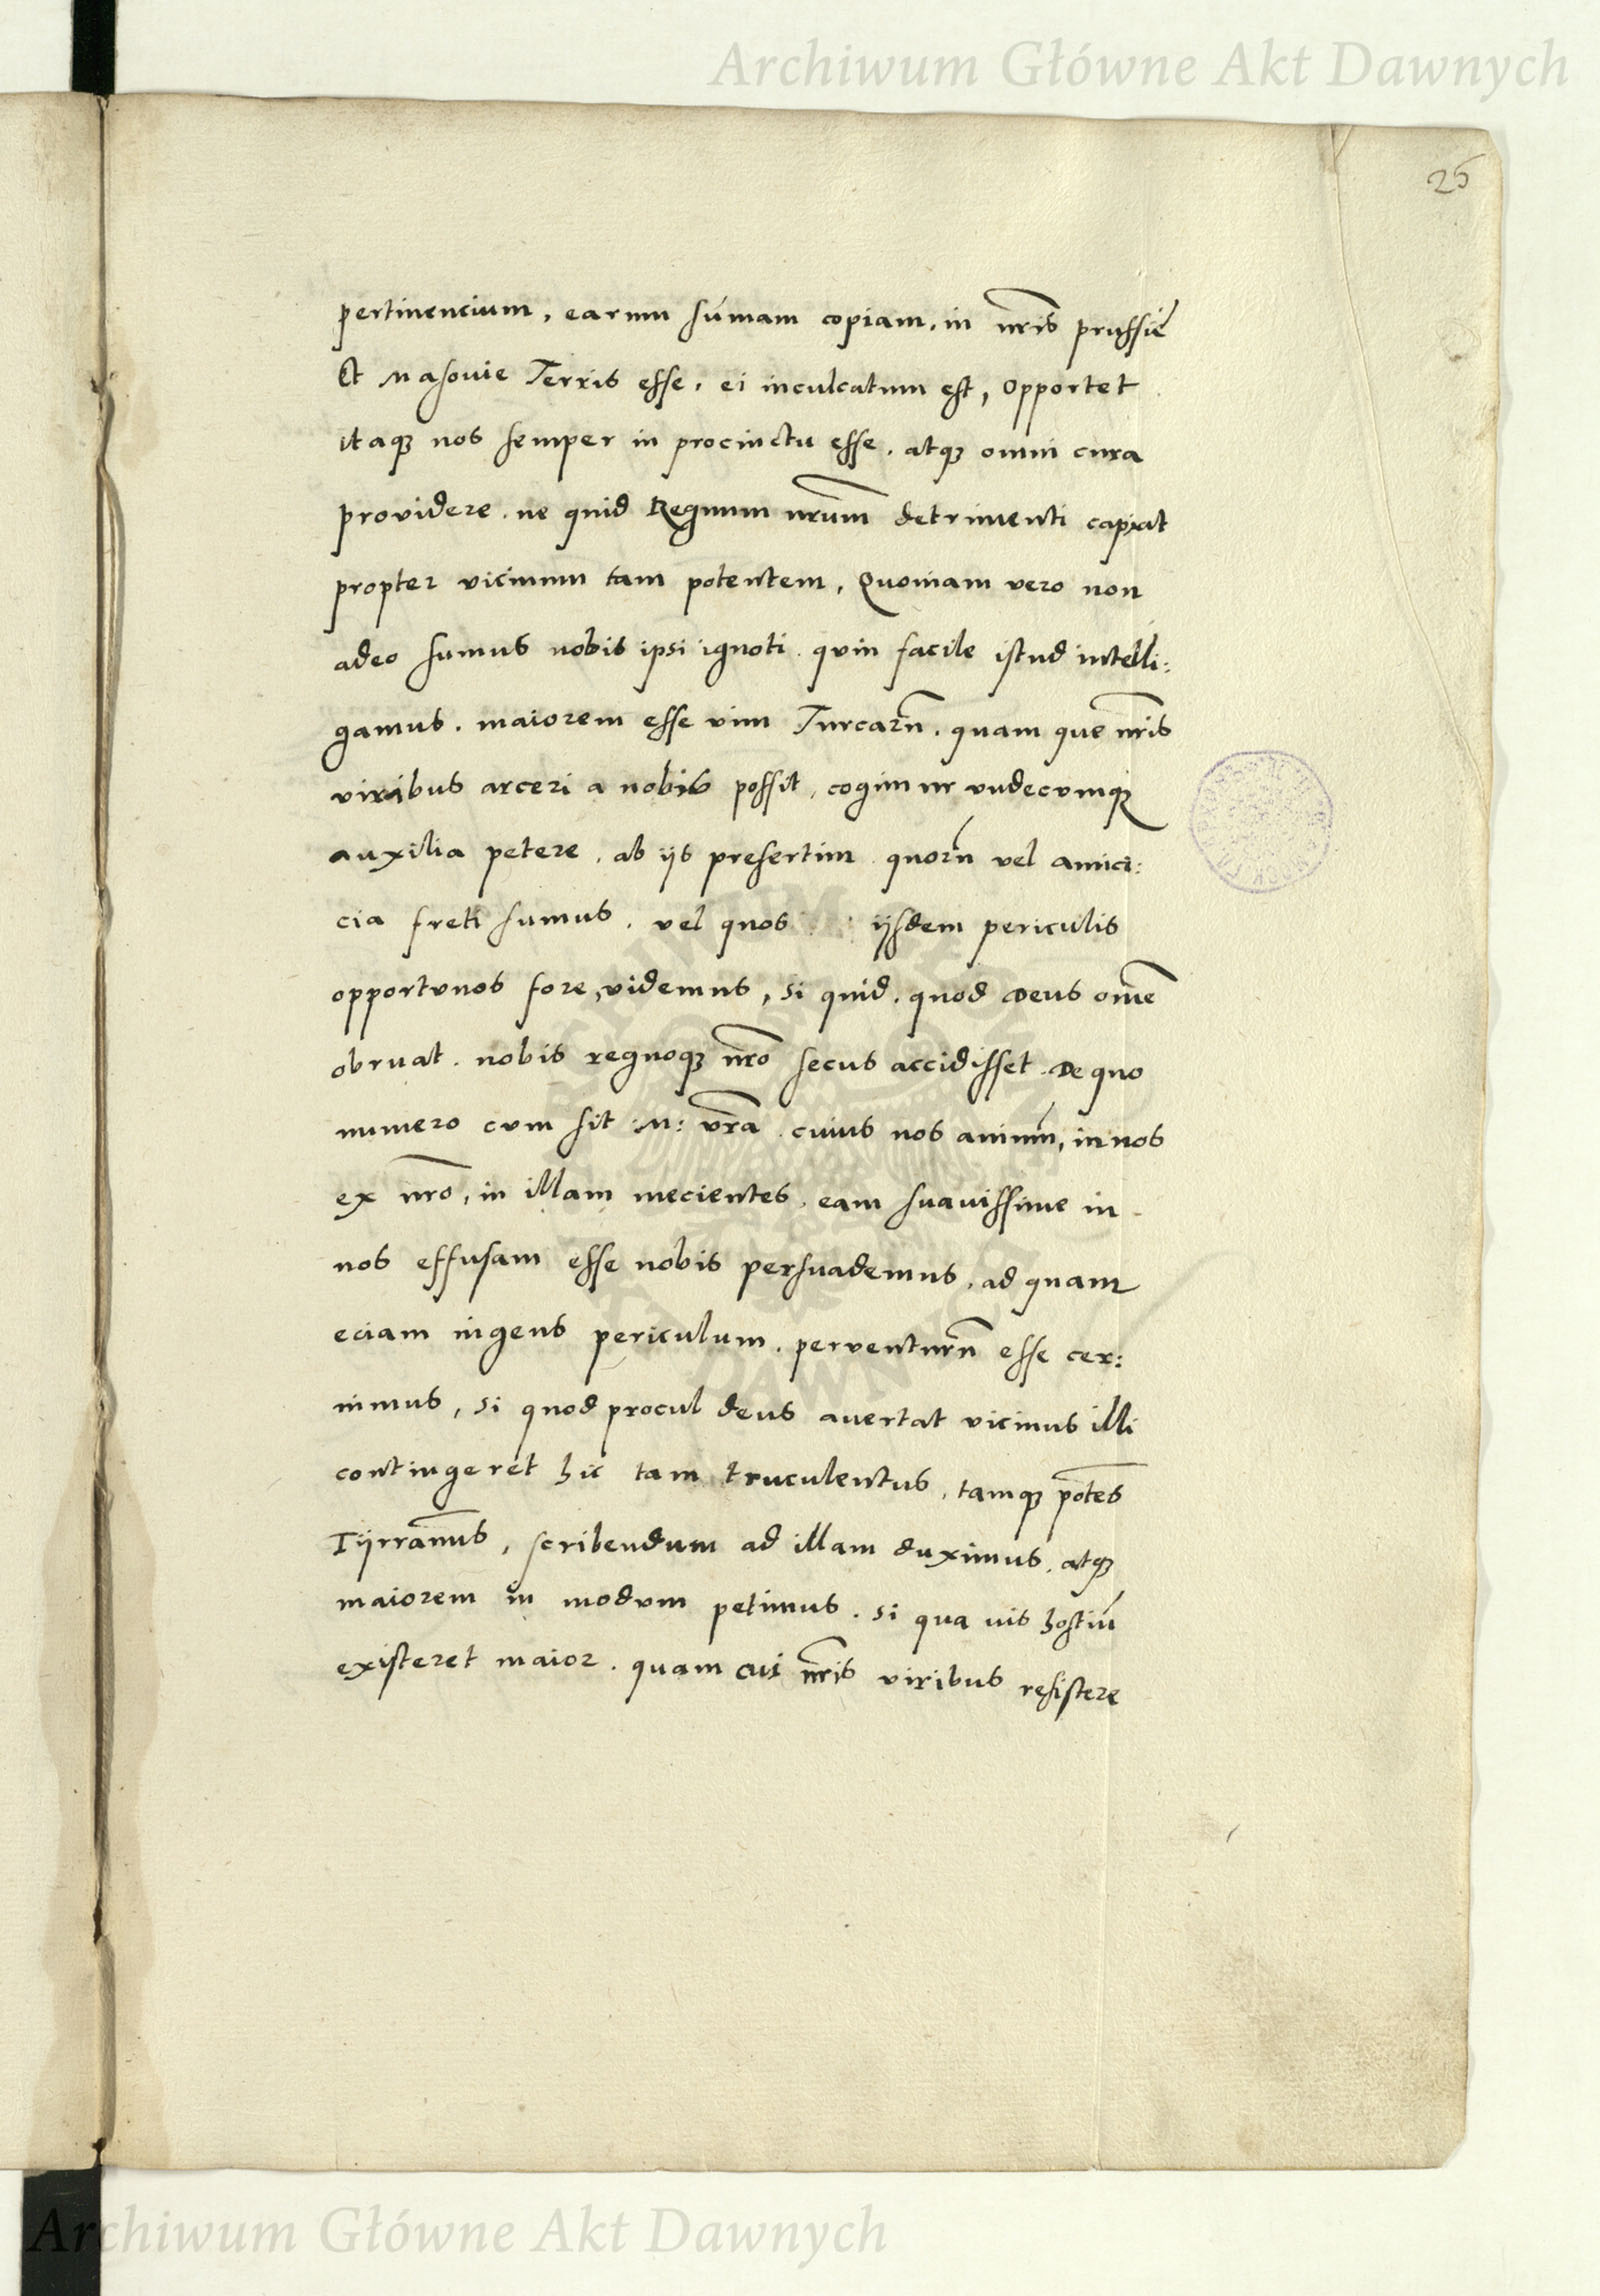 Archiwum Główne Akt Dawnych
25
pertinencium, earum sũmam copiam, in nr̃is prussie
Et Masouie Terris esse, ei inculcatum est, Opportet
itaq₃ nos semper in procinctu esse, atq₃ omni cura
providere ne quid Regnum nr̃um detrimenti capiat
propter vicinum tam potentem, Quoniam vero non
adeo sumus nobis ipsi ignoti quin facile istud intelli:
gamus, maiorem esse vim Turcarũ, quam que nr̃is
viribus arceri a nobis possit, cogimur vndecvmq₃
auxilia petere, ab ijs presertim quorũ vel amici:
cia freti sumus, vel quos ijsdem periculis
opportvnos fore, videmus, si quid, quod Deus om̃e
obruat, nobis regnoq₃ nr̃o secus accidisset. De quo
numero cvm sit M: vr̃a cuius nos animũ, in nos
ex nr̃o, in illam mecientes, eam suauissime in
nos effusam esse nobis persuademus, ad quam
eciam ingens periculum, perventurũ esse cer:
nimus, si quod procul deus auertat vicinus illi
contingeret hic tam truculentus, tamq₃ potẽs
Tijrañus, scribendum ad illam duximus, atq₃
maiorem in modvm petimus, si qua uis hostiũ
existeret maior, quam cui nr̃is viribus resistere
Archiwum Główne Akt Dawnych